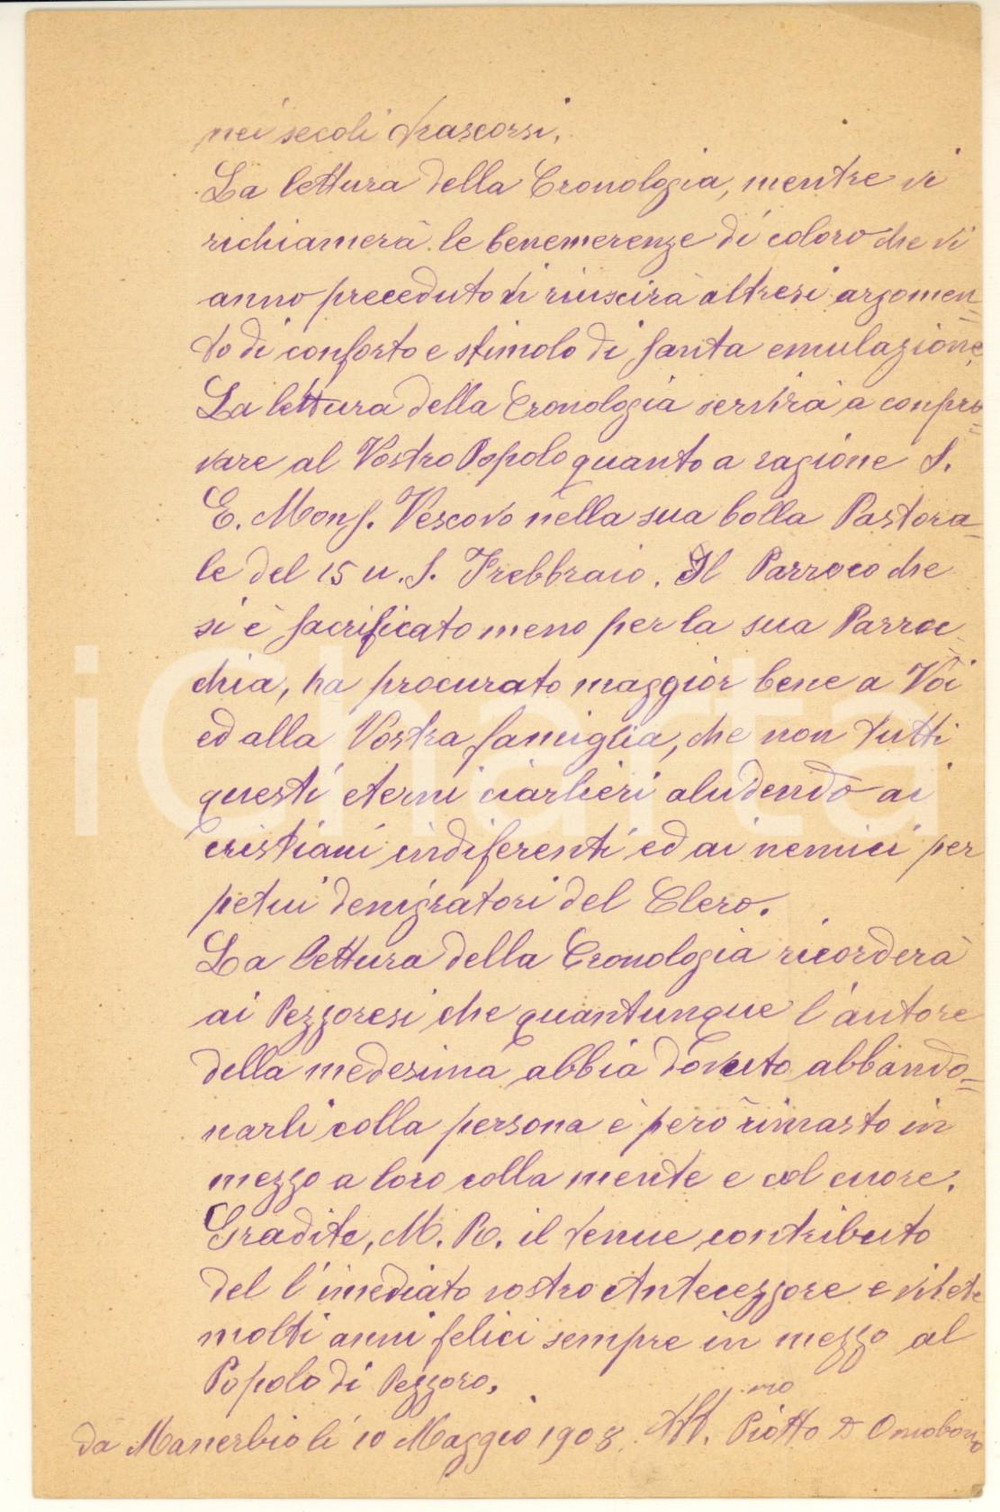 nei secoli trascorsi.
La lettura della Cronologia, mentre vi
richiamerà le benemerenze di coloro che vi
anno preceduto vi riuscirà altresi argomen=
to di conforto e stimolo di santa emulazione.
La lettura della Cronologia servirà a compro=
vare al Vostro Popolo quanto a ragione S.
E. Mons. Vescovo nella sua bolla Pastora=
le del 15 u. s. Frebbraio. Il Parroco che
si è sacrificato meno per la sua Parroc=
chia, ha procurato maggior bene a Voi
ed alla Vostra famiglia, che non tutti
questi eterni ciarlieri aludendo ai
cristiani indiferenti ed ai nemici per
petui denigratori del Clero.
La lettura della Cronologia ricorderà
ai Pezzoresi che quantunque l'autore
della medesima abbia dovuto abbando=
narli colla persona è però rimasto in
mezzo a loro colla mente e col cuore.
Gradite, M. R. il tenue contributo
del l'imediato vostro Antecezzore e vivete
molti anni felici sempre in mezzo al
Popolo di Pezzoro.
da Manerbio li 10 Maggio 1908. Aff.mo Piotto D Omobono
iCharta